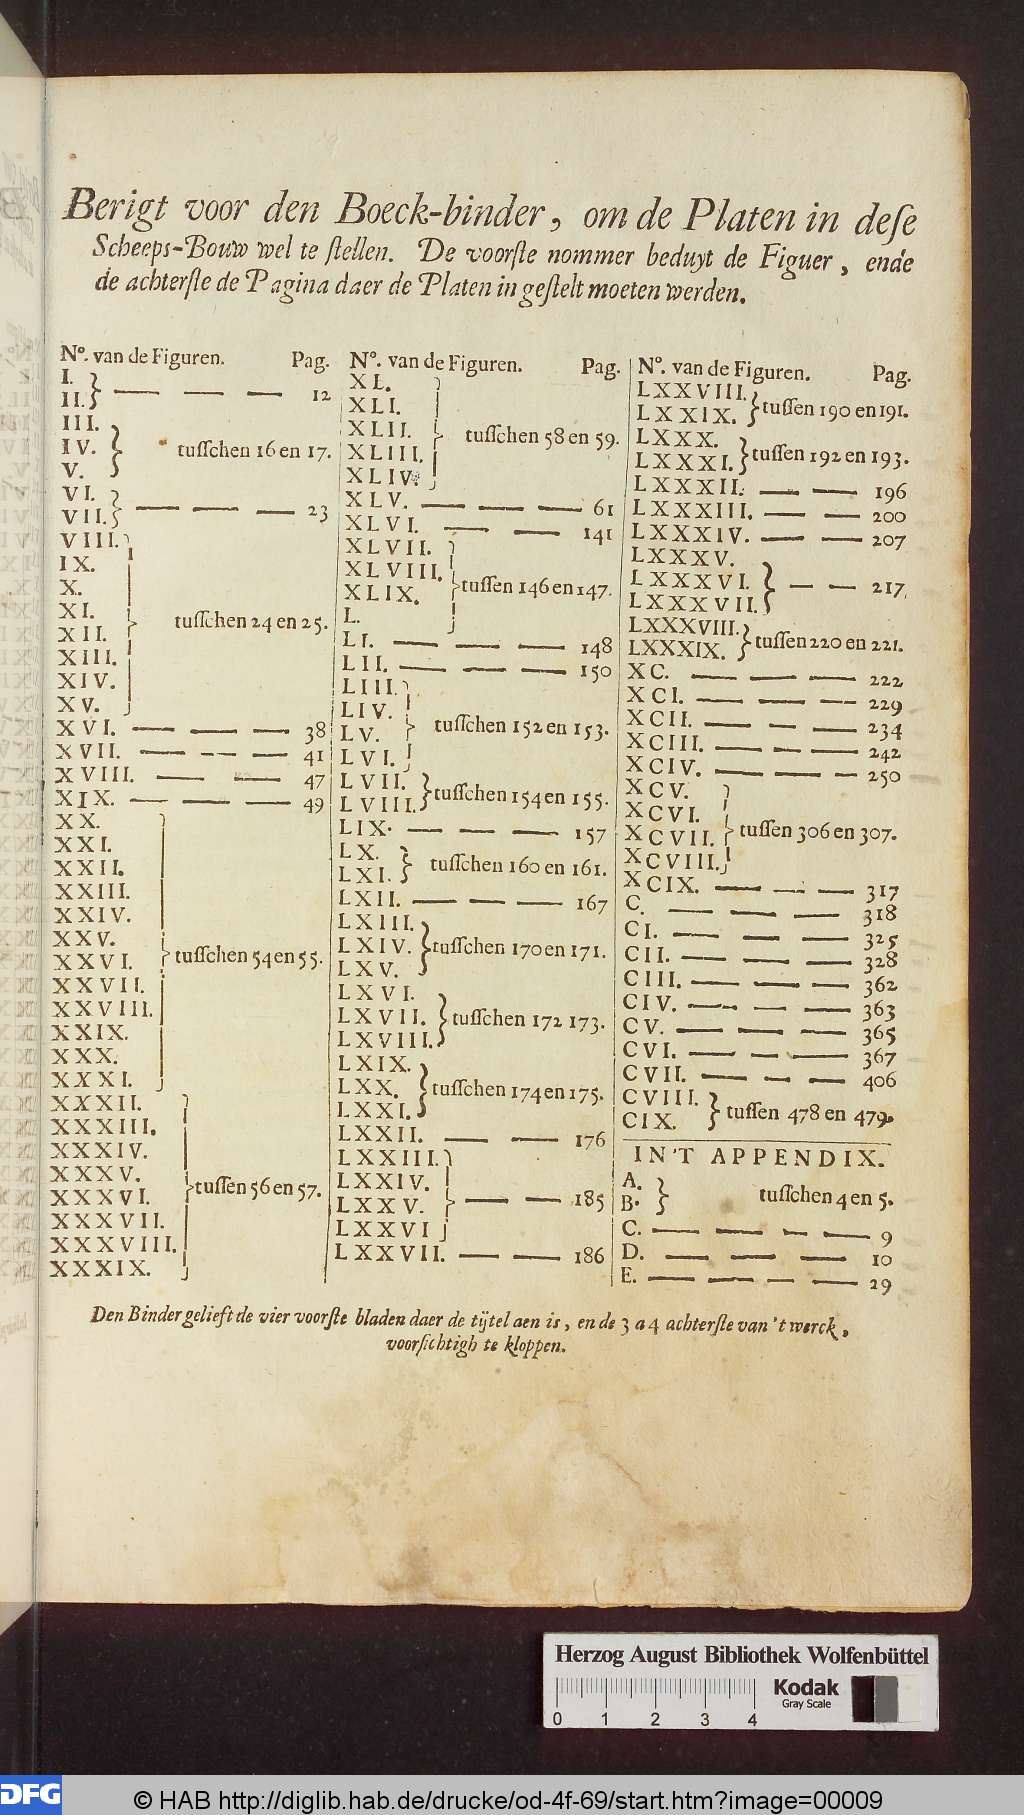 Berigt voor den Boeck-binder, om de Platen in deſe
Scheeps-Bouw wel te ſtellen. De voorſte nommer beduyt de Figuer, ende
de achterſte de Pagina daer de Platen in geſtelt moeten werden.
Nº. van de Figuren. Pag.
I.
II. 12
III.
IV. tuſſchen 16 en 17.
V.
VI.
VII. 23
VIII.
IX.
X.
XI. tuſſchen 24 en 25.
XII.
XIII.
XIV.
XV.
XVI. 38
XVII. 41
XVIII. 47
XIX. 49
XX.
XXI.
XXII.
XXIII.
XXIV.
XXV.
XXVI. tuſſchen 54 en 55.
XXVII.
XXVIII.
XXIX.
XXX.
XXXI.
XXXII.
XXXIII.
XXXIV.
XXXV.
XXXVI. tuſſen 56 en 57.
XXXVII.
XXXVIII.
XXXIX.
Nº. van de Figuren. Pag.
XL.
XLI.
XLII. tuſſchen 58 en 59.
XLIII.
XLIV.
XLV. 61
XLVI. 141
XLVII.
XLVIII. tuſſen 146 en 147.
XLIX.
L.
LI. 148
LII. 150
LIII.
LIV.
LV. tuſſchen 152 en 153.
LVI.
LVII.
LVIII. tuſſchen 154 en 155.
LIX. 157
LX.
LXI. tuſſchen 160 en 161.
LXII. 167
LXIII.
LXIV. tuſſchen 170 en 171.
LXV.
LXVI.
LXVII. tuſſchen 172 173.
LXVIII.
LXIX.
LXX. tuſſchen 174 en 175.
LXXI.
LXXII. 176
LXXIII.
LXXIV.
LXXV. 185
LXXVI
LXXVII. 186
Nº. van de Figuren. Pag.
LXXVIII.
LXXIX. tuſſen 190 en 191.
LXXX.
LXXXI. tuſſen 192 en 193.
LXXXII. 196
LXXXIII. 200
LXXXIV. 207
LXXXV.
LXXXVI. 217
LXXXVII.
LXXXVIII.
LXXXIX. tuſſen 220 en 221.
XC. 222
XCI. 229
XCII. 234
XCIII. 242
XCIV. 250
XCV.
XCVI.
XCVII. tuſſen 306 en 307.
XCVIII.
XCIX. 317
C. 318
CI. 325
CII. 328
CIII. 362
CIV. 363
CV. 365
CVI. 367
CVII. 406
CVIII.
CIX. tuſſen 478 en 479.
IN'T APPENDIX.
A.
B. tuſſchen 4 en 5.
C. 9
D. 10
E. 29
Den Binder gelieft de vier voorſte bladen daer de tijtel aen is, en de 3 a 4 achterſte van 't werck,
voorſichtigh te kloppen.
Herzog August Bibliothek Wolfenbüttel
Kodak
Gray Scale
0 1 2 3 4
DFG
© HAB http://diglib.hab.de/drucke/od-4f-69/start.htm?image=00009